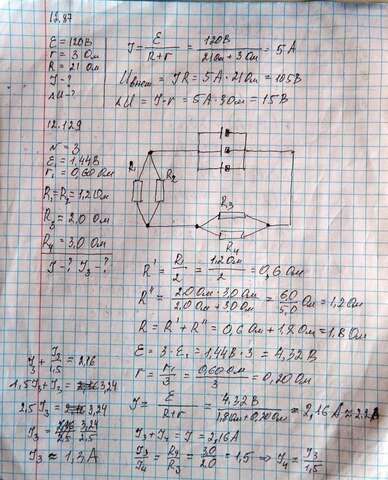 12.97
E = 120 В
r = 3 Ом
R = 21 Ом
I - ?
ΔU - ?
I = E / (R + r) = 120 В / (21 Ом + 3 Ом) = 5 А
Uвнеш = IR = 5 А · 21 Ом = 105 В
ΔU = I · r = 5 А · 3 Ом = 15 В
12.129
N = 3
E = 1,44 В
r₁ = 0,60 Ом
R₁ = R₂ = 1,2 Ом
R₃ = 2,0 Ом
R₄ = 3,0 Ом
I - ? I₃ - ?
R₁
R₂
R₃
R₄
R' = R₁ / 2 = 1,2 Ом / 2 = 0,6 Ом
R'' = 2,0 Ом · 3,0 Ом / (2,0 Ом + 3,0 Ом) = 6,0 / 5,0 Ом = 1,2 Ом
R = R' + R'' = 0,6 Ом + 1,2 Ом = 1,8 Ом
E = 3 · E₁ = 1,44 В · 3 = 4,32 В
r = r₁ / 3 = 0,60 Ом / 3 = 0,20 Ом
I = E / (R + r) = 4,32 В / (1,8 Ом + 0,20 Ом) = 2,16 А ≈ 2,2 А
I₃ + I₄ = I = 2,16 А
I₃ / I₄ = R₄ / R₃ = 3,0 / 2,0 = 1,5 ⇒ I₄ = I₃ / 1,5
I₃ + I₃ / 1,5 = 2,16
1,5 I₃ + I₃ = 3,24
2,5 I₃ = 3,24
I₃ = 3,24 / 2,5
I₃ ≈ 1,3 А